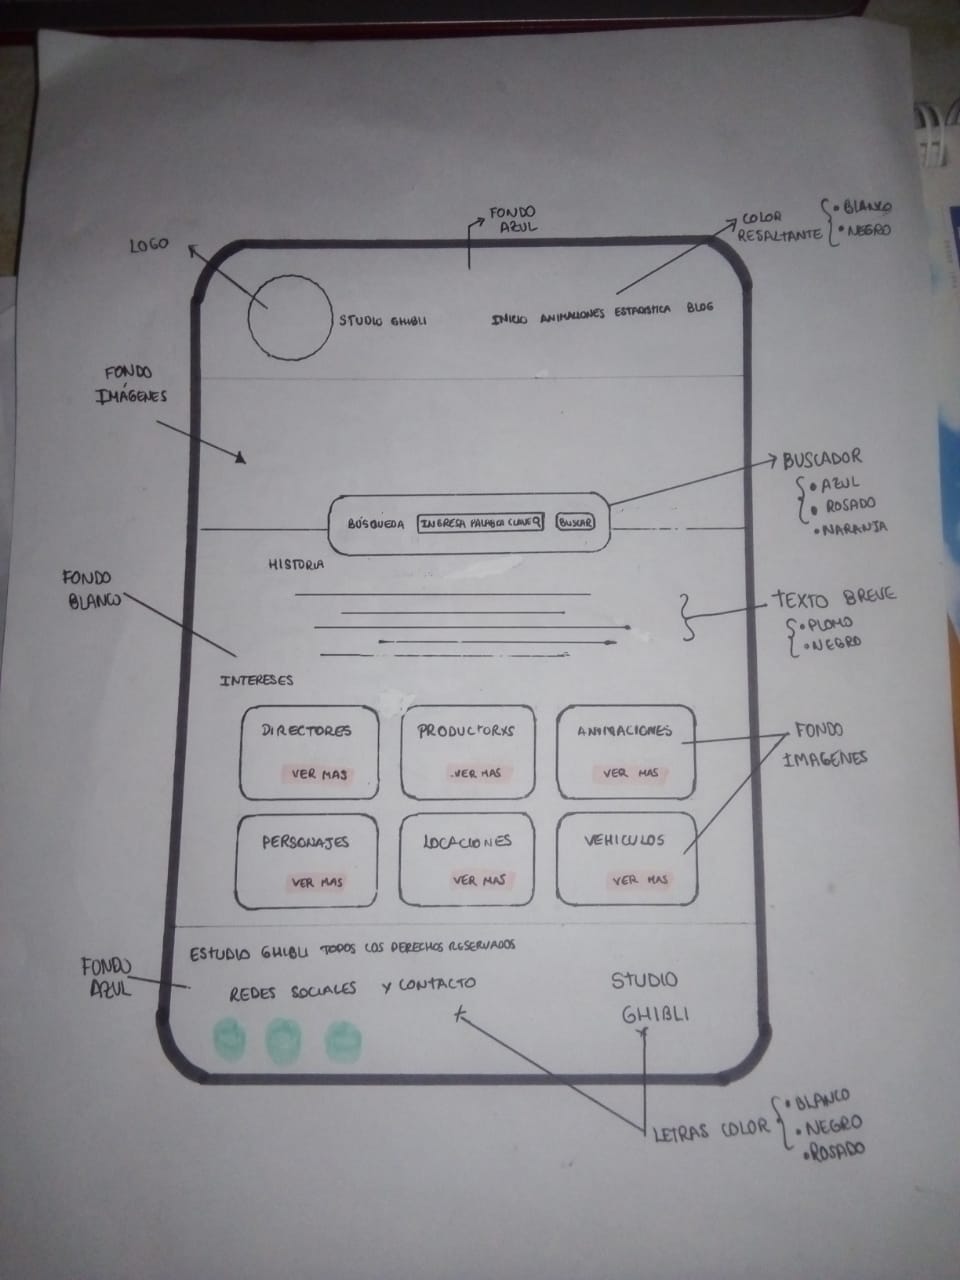 FONDO
AZUL
COLOR
RESALTANTE
• BLANCO
• NEGRO
LOGO
STUDIO GHIBLI
INICIO ANIMACIONES ESTADISTICA BLOG
FONDO
IMÁGENES
BUSCADOR
• AZUL
• ROSADO
• NARANJA
BÚSQUEDA INGRESA PALABRA CLAVE BUSCAR
HISTORIA
FONDO
BLANCO
TEXTO BREVE
• PLOMO
• NEGRO
INTERESES
DIRECTORES
VER MAS
PRODUCTORXS
VER MAS
ANIMACIONES
VER MAS
FONDO
IMAGENES
PERSONAJES
VER MAS
LOCACIONES
VER MAS
VEHICULOS
VER MAS
ESTUDIO GHIBLI TODOS LOS DERECHOS RESERVADOS
FONDO
AZUL
REDES SOCIALES Y CONTACTO
STUDIO
GHIBLI
LETRAS COLOR
• BLANCO
• NEGRO
• ROSADO